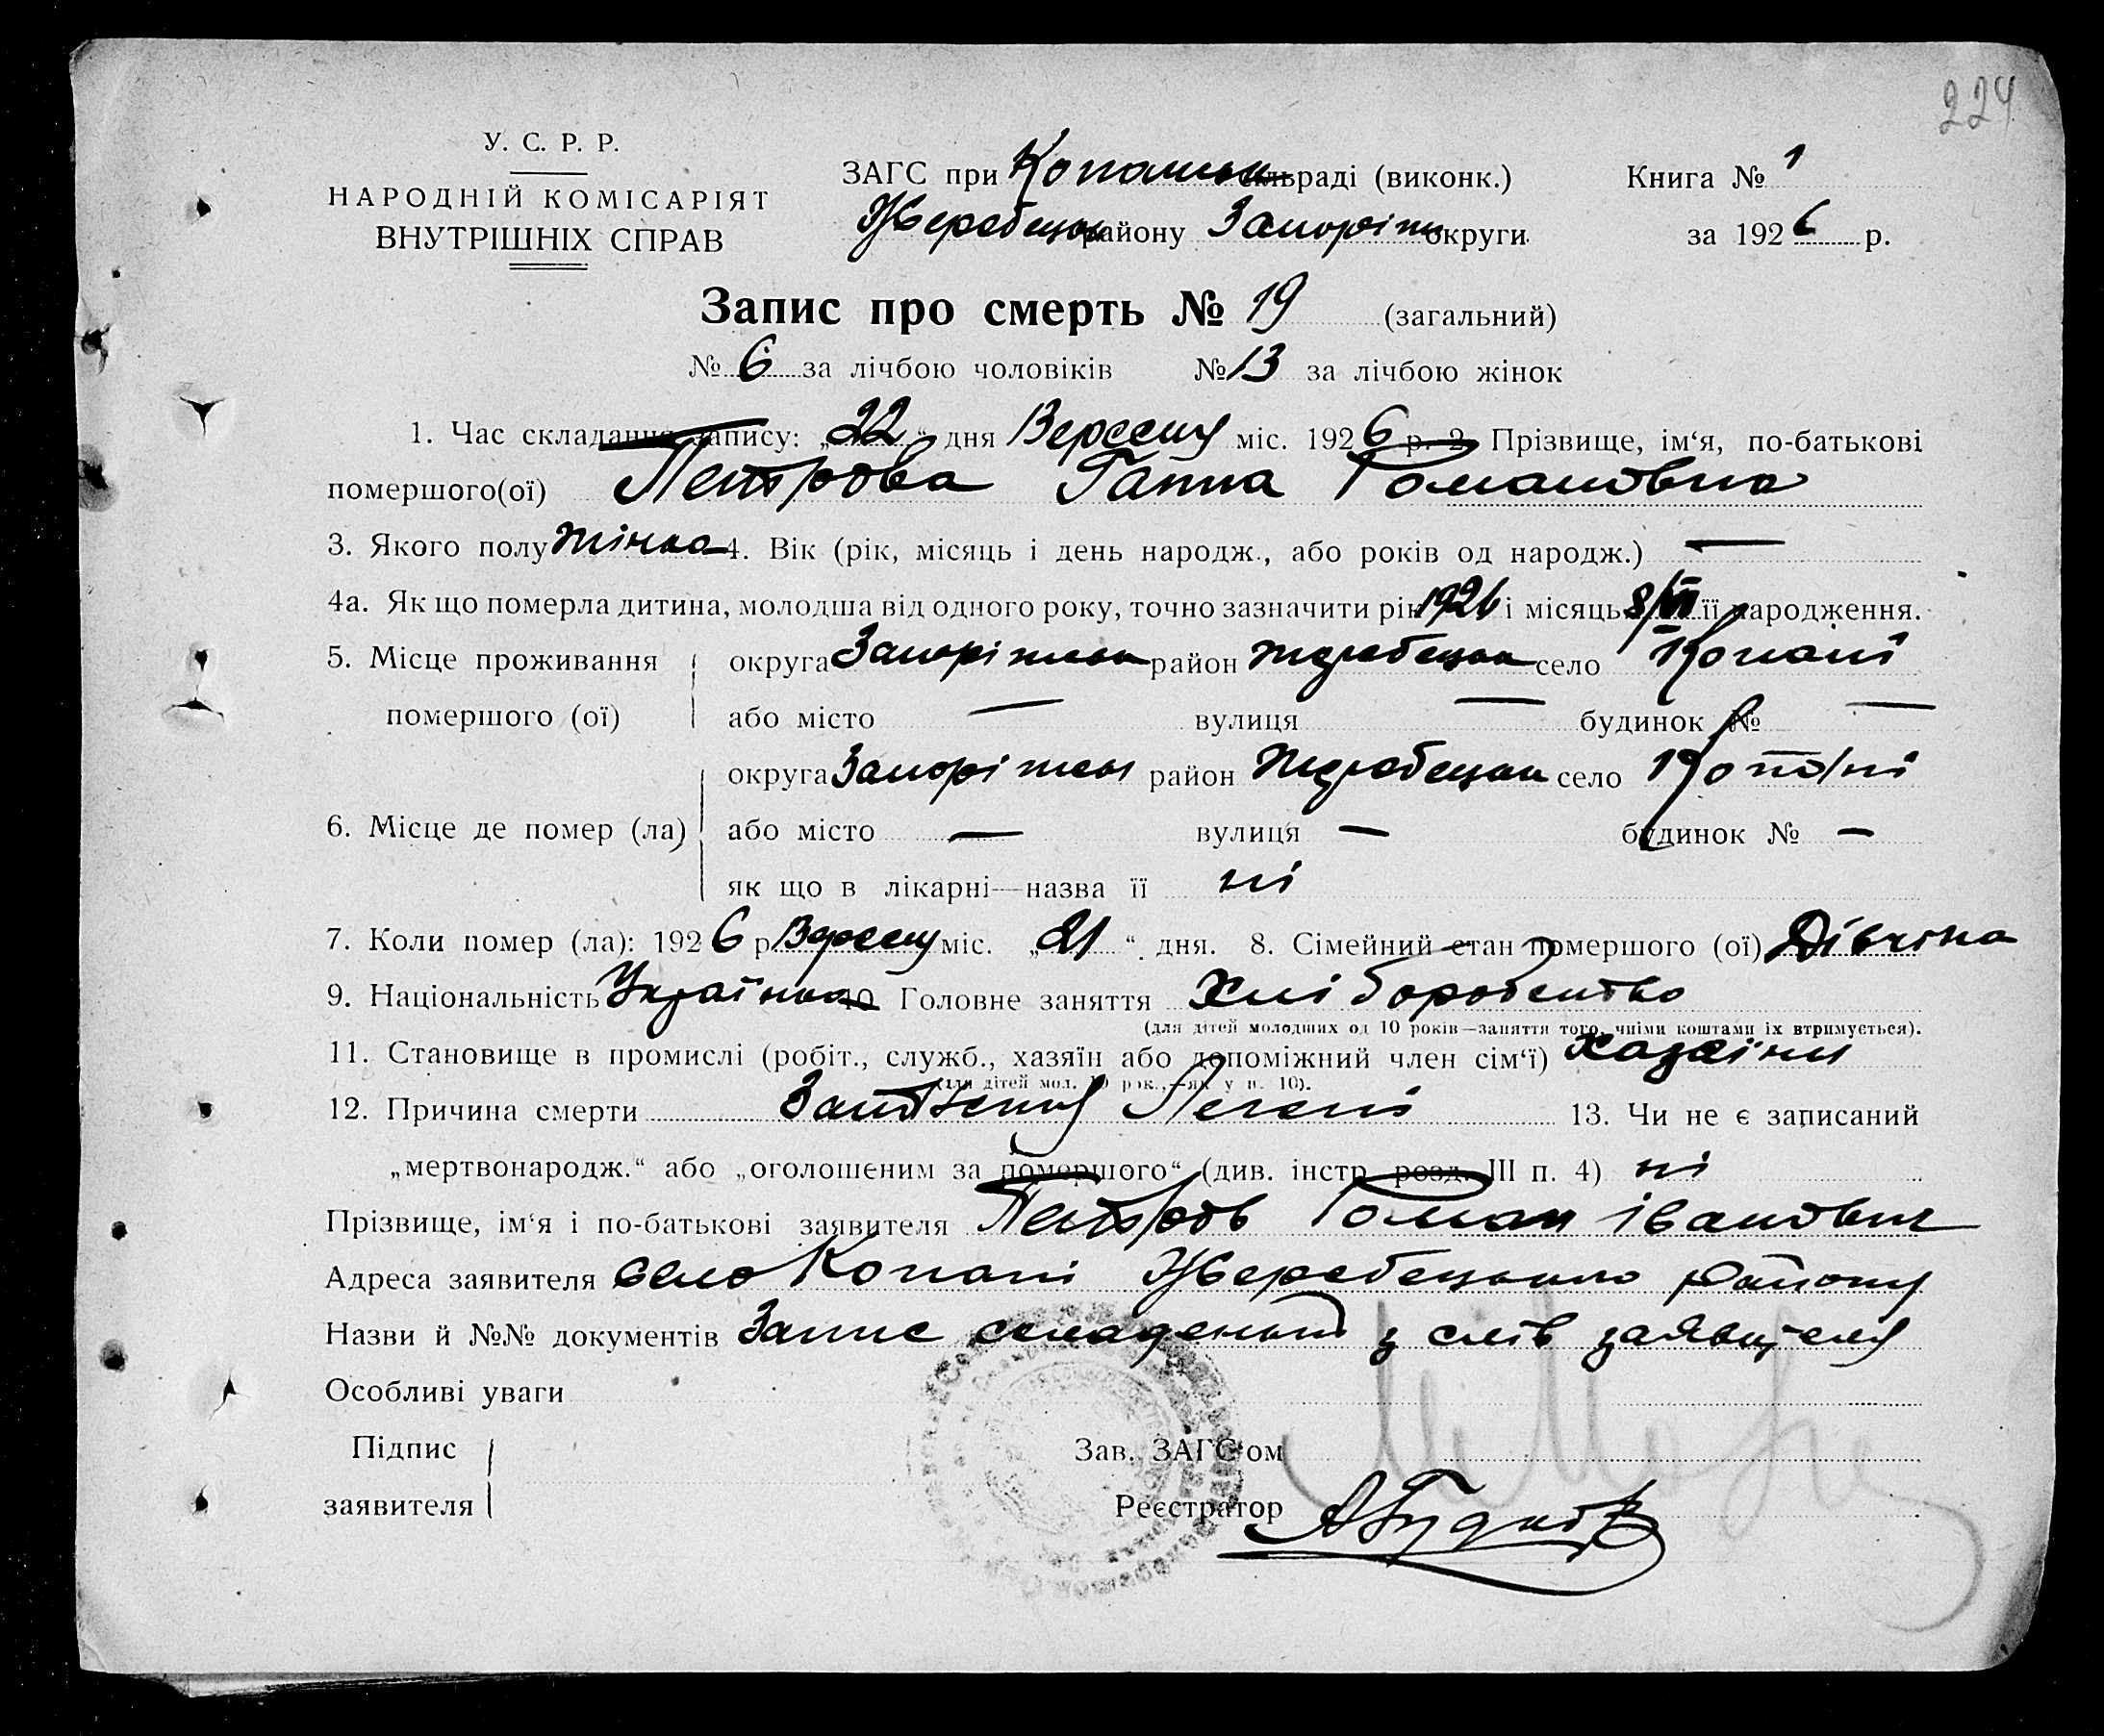 224
У. С. Р. Р.
НАРОДНІЙ КОМІСАРІЯТ
ВНУТРІШНІХ СПРАВ
ЗАГС при Копанськ сільраді (виконк.) Книга № 1
Жеребецьк району Запоріж округи за 1926 р.
Запис про смерть № 19 (загальний)
№ 6 за лічбою чоловіків № 13 за лічбою жінок
1. Час складання запису: „22“ дня Вересня міс. 1926 р. 2. Прізвище, ім‘я, по-батькові
помершого(ої) Петрова Ганна Романовна
3. Якого полу жінка 4. Вік (рік, місяць і день народж., або років од народж.) —
4а. Як що померла дитина, молодша від одного року, точно зазначити рік 1926 і місяць її народження.
5. Місце проживання округа Запоріжськ район Жеребецьк село Копані
помершого (ої) або місто — вулиця — будинок № —
округа Запоріжськ район Жеребецьк село Копані
6. Місце де помер (ла) або місто — вулиця — будинок № —
як що в лікарні—назва її ні
7. Коли помер (ла): 1926 р Вересня міс. „21“ дня. 8. Сімейний стан помершого (ої) Дівчина
9. Національність Українка 10 Головне заняття Хліборобство
(для дітей молодших од 10 років—заняття того, чиїми коштами їх втримується).
11. Становище в промислі (робіт., служб., хазяїн або допоміжний член сім‘ї) Хазяїни
(для дітей мол. 10 рок.,—як у п. 10).
12. Причина смерти Запаленя Легенів 13. Чи не є записаний
„мертвонародж.“ або „оголошеним за помершого“ (див. інстр. розд. III п. 4) ні
Прізвище, ім‘я і по-батькові заявителя Петров Роман Іванович
Адреса заявителя село Копані Жеребецького району
Назви й №№ документів Запис складений з слів заявителя
Особливі уваги
Підпис Зав. ЗАГС‘ом
заявителя Реєстратор